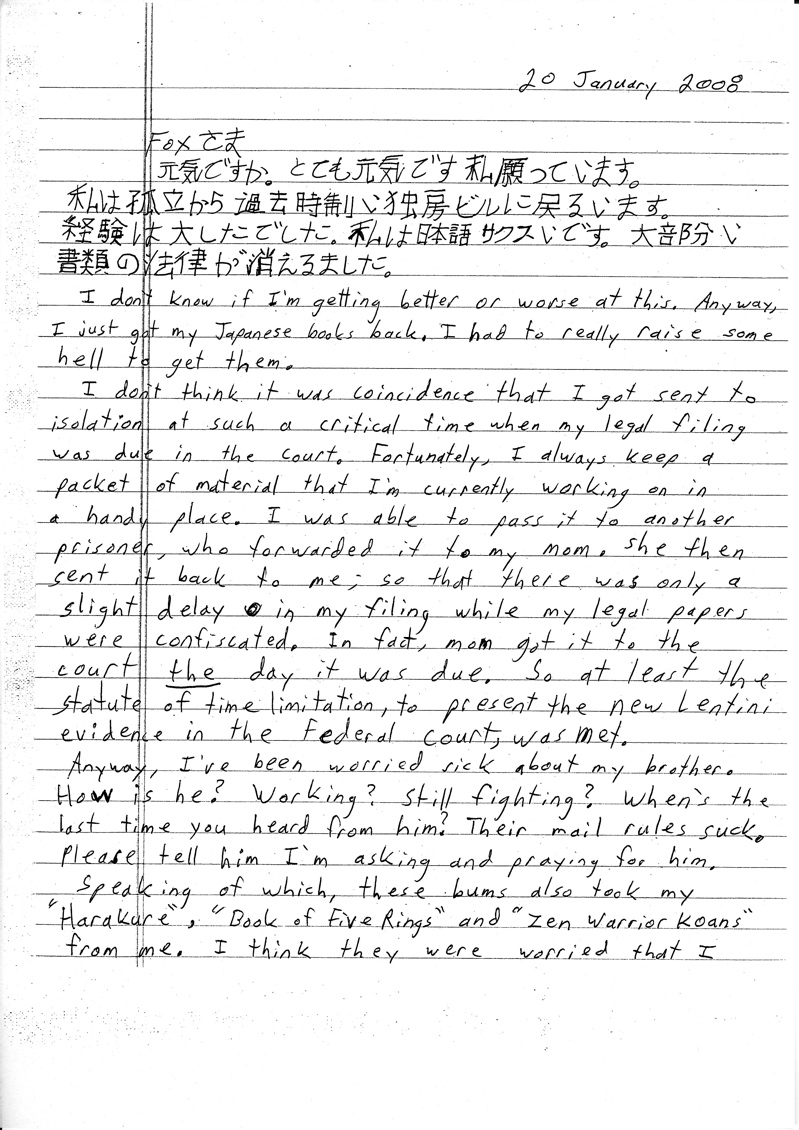 20 January 2008
Fox さま
元気ですか。とても元気です 私願っています。
私は孤立から過去時制い独房ビルに戻るいます。
経験は大したでした。私は日本語サクスいです。大部分い
書類の法律が消えるました。
I don't know if I'm getting better or worse at this. Anyway,
I just got my Japanese books back. I had to really raise some
hell to get them.
I don't think it was coincidence that I got sent to
isolation at such a critical time when my legal filing
was due in the court. Fortunately, I always keep a
packet of material that I'm currently working on in
a handy place. I was able to pass it to another
prisoner, who forwarded it to my mom. She then
sent it back to me; so that there was only a
slight delay in my filing while my legal papers
were confiscated. In fact, mom got it to the
court the day it was due. So at least the
statute of time limitation, to present the new Lentini
evidence in the Federal court, was met.
Anyway, I've been worried sick about my brother.
How is he? Working? Still fighting? When's the
last time you heard from him? Their mail rules suck.
Please tell him I'm asking and praying for him.
Speaking of which, these bums also took my
"Harakure", "Book of Five Rings" and "Zen Warrior Koans"
from me. I think they were worried that I